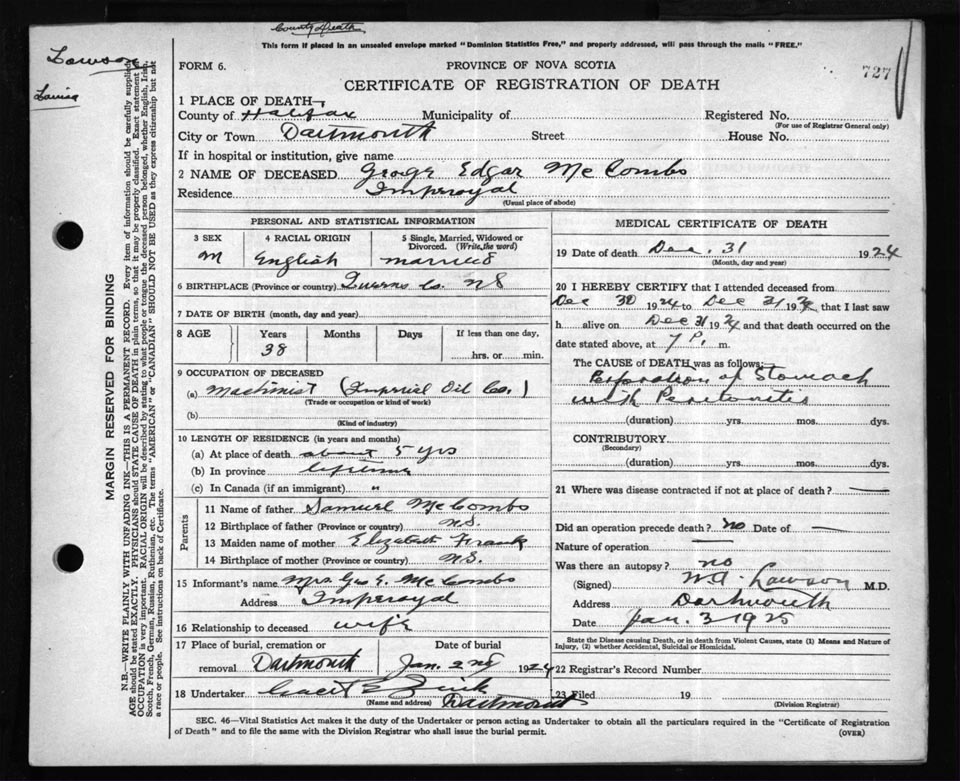 County Death
This form if placed in an unsealed envelope marked "Dominion Statistics Free," and properly addressed, will pass through the mails "FREE."
Lawson
Louisa
FORM 6. PROVINCE OF NOVA SCOTIA 727
CERTIFICATE OF REGISTRATION OF DEATH
MARGIN RESERVED FOR BINDING
N.B.—WRITE PLAINLY WITH UNFADING INK—THIS IS A PERMANENT RECORD. Every item of information should be carefully supplied.
AGE should be stated EXACTLY. PHYSICIANS should STATE CAUSE OF DEATH in plain terms, so that it may be properly classified. Exact statement of
OCCUPATION is very important. RACIAL ORIGIN will be described by stating to what people or tongue the deceased person belonged, whether English, Irish,
Scotch, French, German, Russian, Ruthenian, etc. The terms "AMERICAN" or "CANADIAN" SHOULD NOT BE USED as they express citizenship but not
a race or people. See instructions on back of Certificate.
1 PLACE OF DEATH—
County of Halifax Municipality of Registered No.
(For use of Registrar General only)
City or Town Dartmouth Street House No.
If in hospital or institution, give name
2 NAME OF DECEASED George Edgar McCombs
Residence Imperoyal
(Usual place of abode)
PERSONAL AND STATISTICAL INFORMATION
3 SEX 4 RACIAL ORIGIN 5 Single, Married, Widowed or Divorced. (Write the word)
M English married
6 BIRTHPLACE (Province or country) Queens Co. NS
7 DATE OF BIRTH (month, day and year)
8 AGE Years Months Days If less than one day,
38 hrs. or min.
9 OCCUPATION OF DECEASED
(a) Machinist (Imperial Oil Co.)
(Trade or occupation or kind of work)
(b)
(Kind of industry)
10 LENGTH OF RESIDENCE (in years and months)
(a) At place of death about 5 yrs
(b) In province lifetime
(c) In Canada (if an immigrant) "
Parents
11 Name of father Samuel McCombs
12 Birthplace of father (Province or country) N.S.
13 Maiden name of mother Elizabeth Frank
14 Birthplace of mother (Province or country) N.S.
15 Informant's name Mrs. Geo E. McCombs
Address Imperoyal
16 Relationship to deceased wife
17 Place of burial, cremation or Date of burial
removal Dartmouth Jan. 2nd 1924
18 Undertaker E Zink
(Name and address) Dartmouth
MEDICAL CERTIFICATE OF DEATH
19 Date of death Dec. 31 1924
(Month, day and year)
20 I HEREBY CERTIFY that I attended deceased from
Dec 30 1924 to Dec 31 1924 that I last saw
h alive on Dec 31 1924 and that death occurred on
date stated above, at 7 P. m.
The CAUSE OF DEATH was as follows:
Perforation of Stomach
with Peritonitis
(duration) yrs. mos. dys.
CONTRIBUTORY
(Secondary)
(duration) yrs. mos. dys.
21 Where was disease contracted if not at place of death? —
Did an operation precede death? no Date of —
Nature of operation —
Was there an autopsy? no
(Signed) W.A. Lawson M.D.
Address Dartmouth
Date Jan. 3 1925
State the Disease causing Death, or in death from Violent Causes, state (1) Means and Nature of
Injury, (2) whether Accidental, Suicidal or Homicidal.
22 Registrar's Record Number
23 Filed 19
(Division Registrar)
SEC. 46—Vital Statistics Act makes it the duty of the Undertaker or person acting as Undertaker to obtain all the particulars required in the "Certificate of Registration
of Death" and to file the same with the Division Registrar who shall issue the burial permit. (OVER)